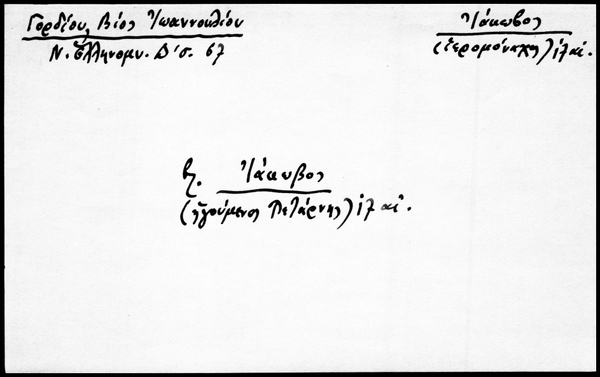 Γορδίου, Βίος Ἰωαννουλίου
Ν. Ἑλληνομν. Δ' σ. 67
Ἰάκωβος
(ἱερομόναχος) ιζ αἰ.
βλ. Ἰάκωβος
(ἡγούμενος Πετάρνης) ιζ αἰ.